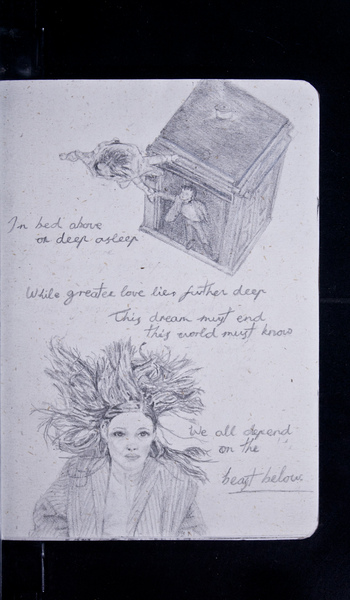 In bed above
on deep asleep
While greater love lies further deep
This dream must end
this world must know
We all depend
on the
beast below